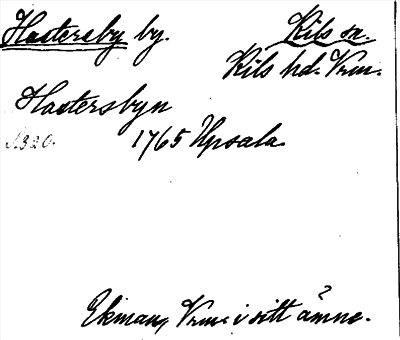 Hastersby by. Kils sn.
Kils hd. Vrm.
Hastersbyn
s. 320. 1765 Upsala
Ekman, Vrm. i sitt ämne.